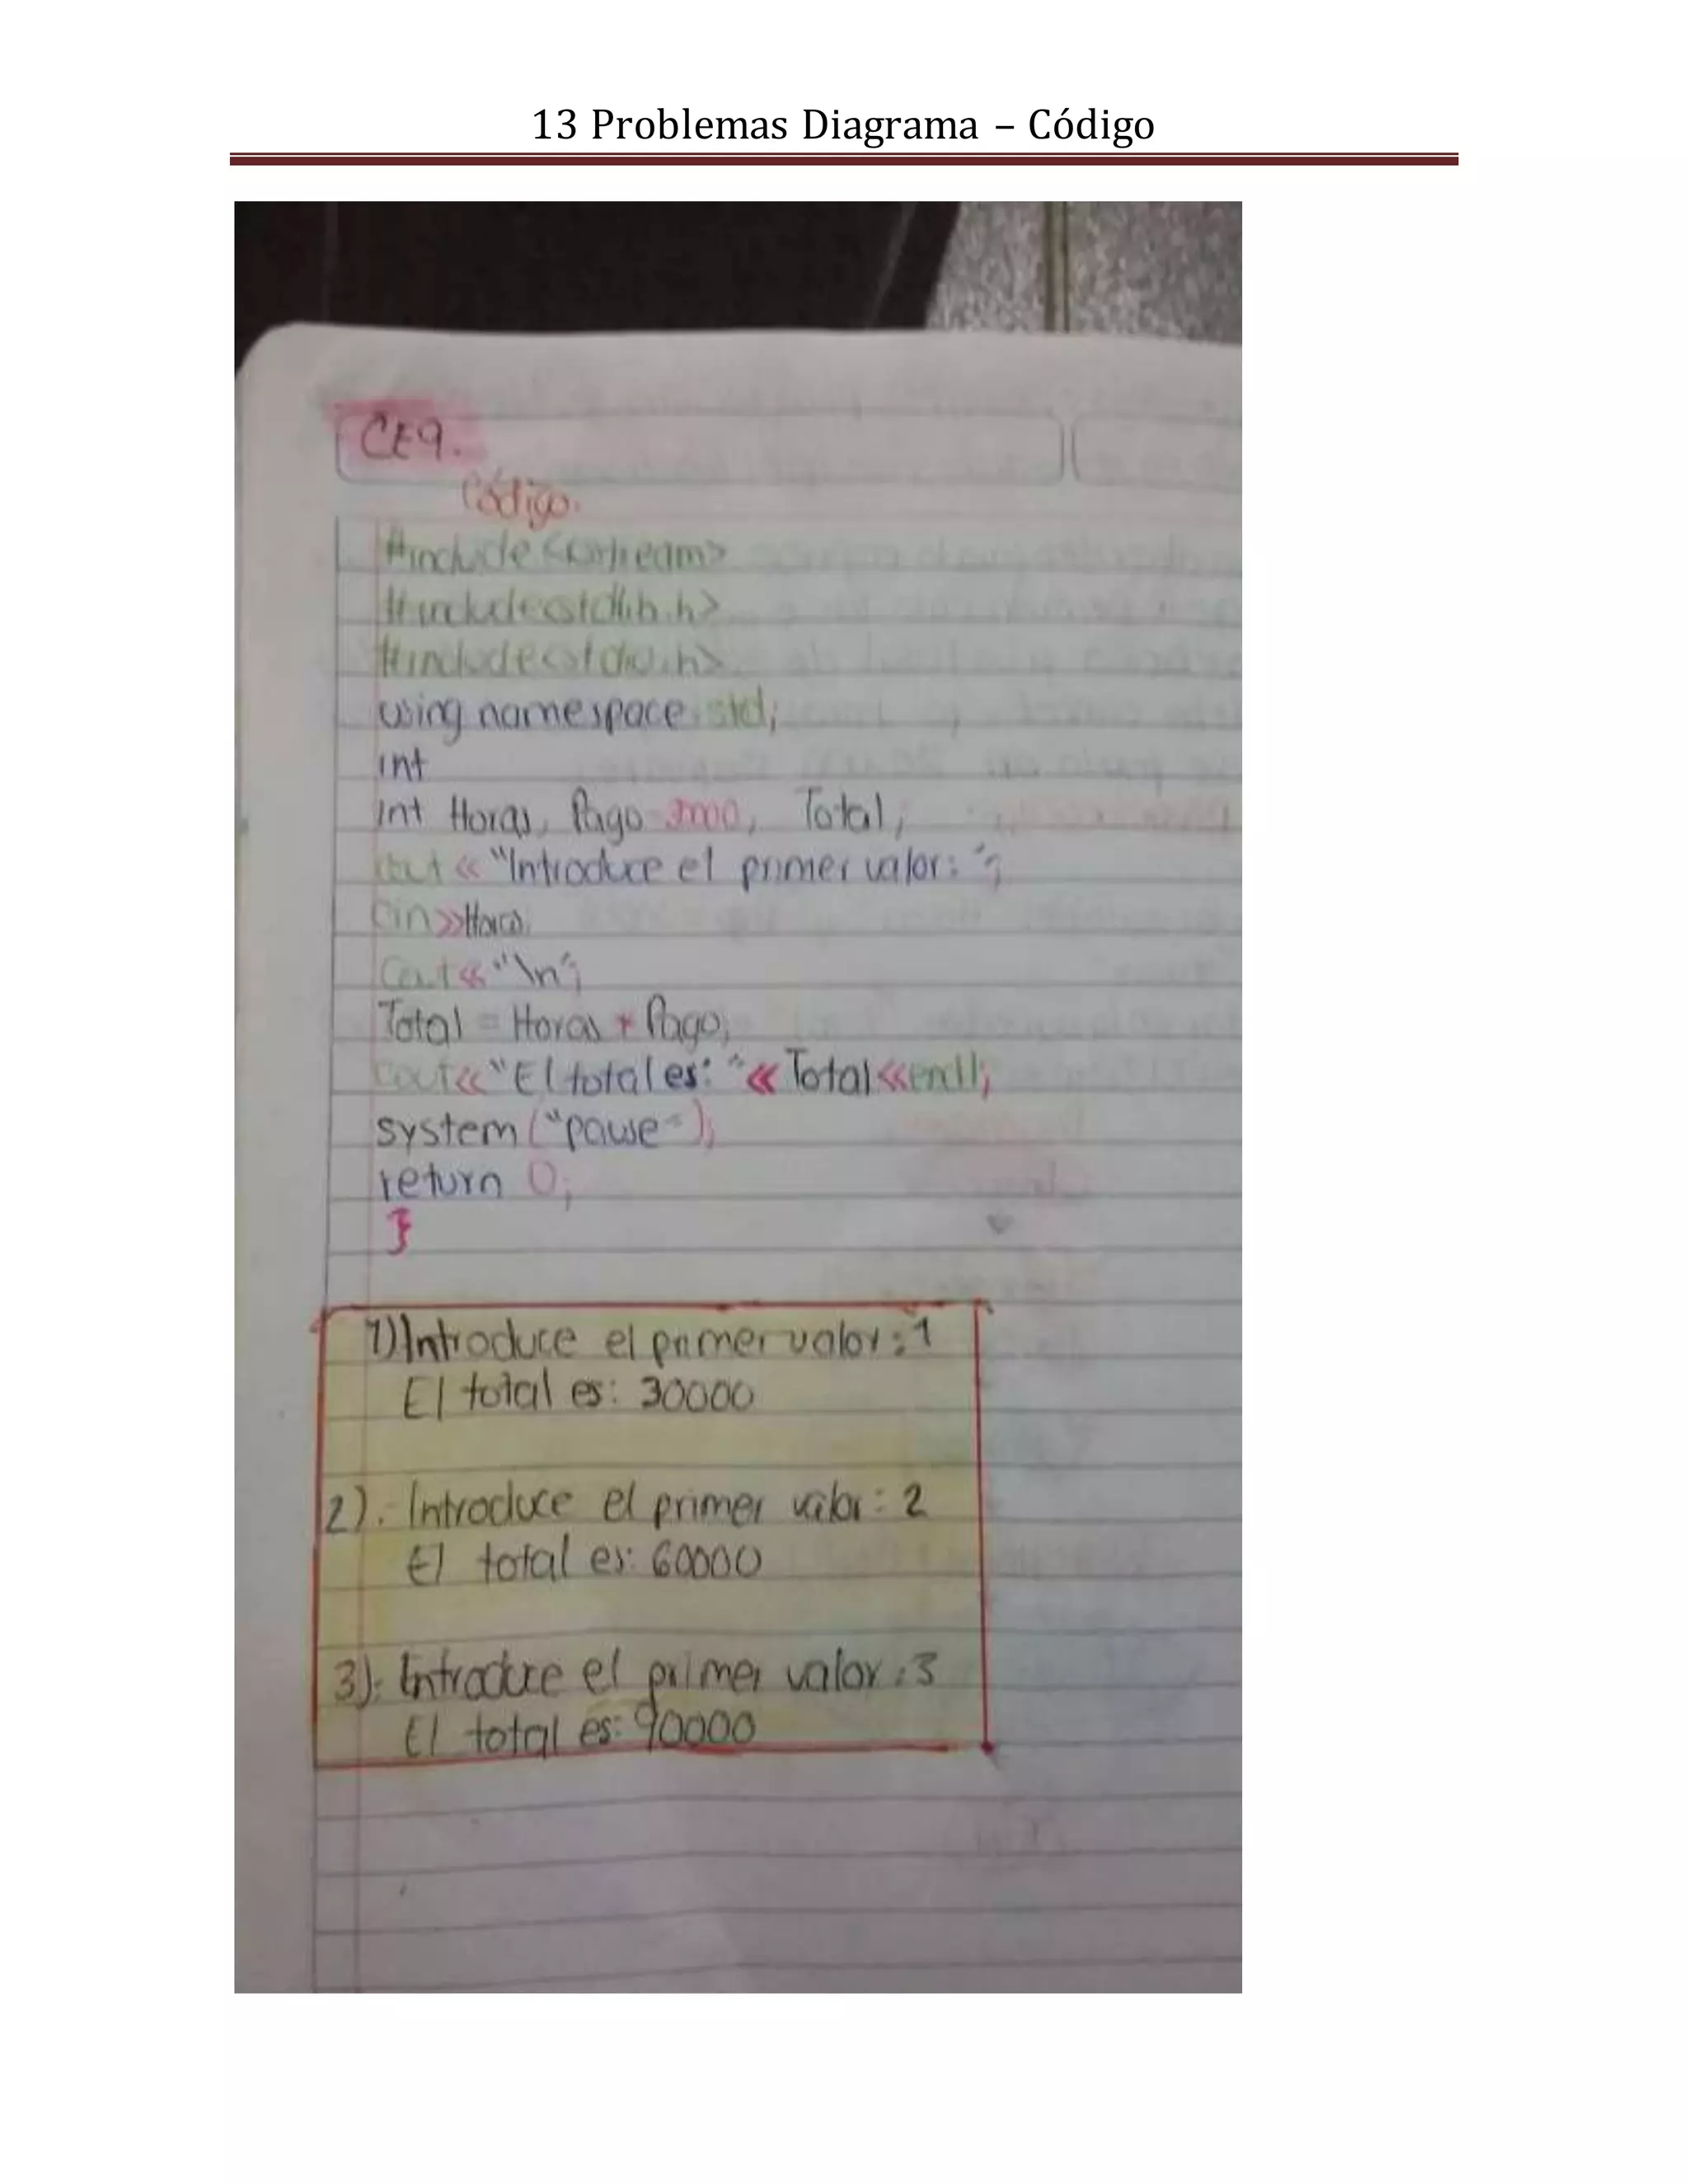 13 Problemas Diagrama – Código
CE9.
Código.
#include <iostream>
#include<stdlib.h>
#include<stdio.h>
using namespace std;
int
int Horas, Pago= Total;
cout << "Introduce el primer valor: ";
cin>>Horas
cout<<"\n";
Total = Horas * Pago;
cout<<"El total es: "<< Total<<endl;
system("pause");
return 0;
}
1)Introduce el primer valor: 1
El total es: 30000
2).- Introduce el primer valor: 2
El total es: 60000
3).- Introduce el primer valor: 3
El total es: 90000